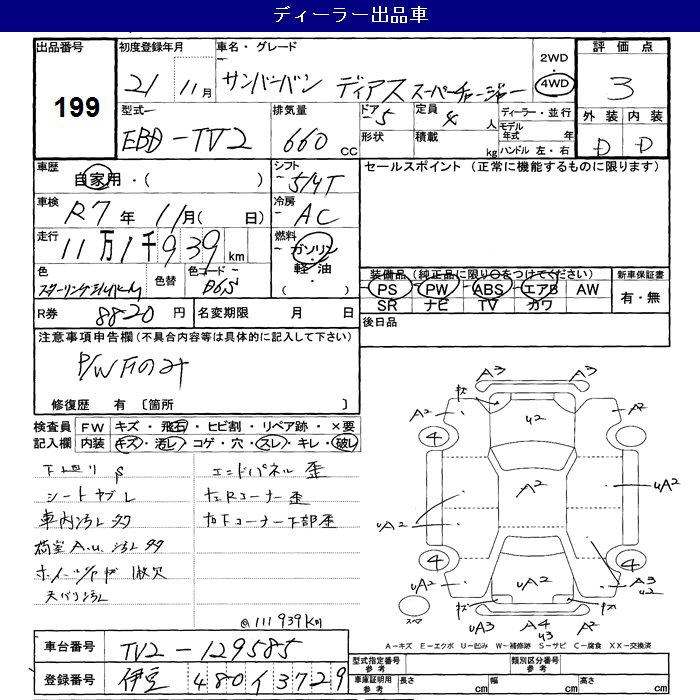 ディーラー出品車
出品番号 初度登録年月 車名・グレード 2WD 評価点
199 21年 11月 サンバーバン ディアス スーパーチャージャー 4WD 3
型式 排気量 ドア 定員 ディーラー・並行 外装 内装
EBD-TV2 660 cc 5 4人 モデル年式 年 D D
形状 積載 kg ハンドル 左・右
車歴 シフト セールスポイント (正常に機能するものに限ります)
自家用・( ) 5/4T
車検 冷房
R7年 11月( 日) AC
走行 燃料
11万1千939km ガソリン
軽油
( ・ )
色 色替 色コード 装備品 (純正品に限り○をつけてください) 新車保証書
スターリングシルバーM D6S PS PW ABS エアB AW 有・無
SR ナビ TV カワ
R券 8820円 名変期限 月 日 後日品
注意事項申告欄 (不具合内容等は具体的に記入して下さい)
P/W Fのみ
修復歴 有 〔箇所 〕
検査員 FW キズ・飛石・ヒビ割・リペア跡・×要
記入欄 内装 キズ・汚レ・コゲ・穴・スレ・キレ・破レ
下廻り エンドパネル 歪
シートヤブレ 左Rコーナー 歪
車内 コーナー下部歪
荷室
欠
@111939Km
A3 A3
A2 キズ U2 A2
4 4
A2
UA2 UA2
4 4
UA2 UA2 A3 U2
スペア キズ キズ
UA3 A4 U3 A3
A-キズ E-エクボ U-凹み W-補修跡 S-サビ C-腐食 XX-交換済
車台番号 TV2-129585 型式指定番号 参考 類別区分番号 参考
登録番号 伊豆 480 イ 3729 車庫証明用 参考 長さ cm 幅 cm 高さ cm